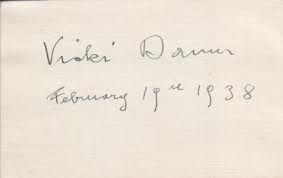 Vicki
February 19th 1938